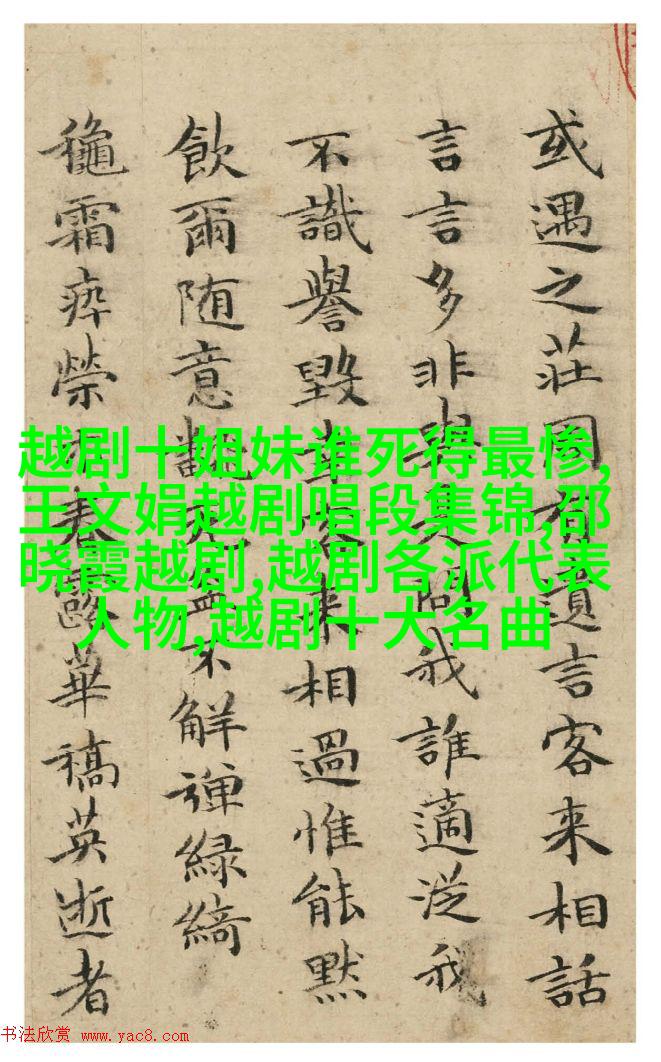 或遇之莊有遺言客来相話
言言多非與其問我誰適從我
不識譽毀客来相過惟能默
飲爾随意不解弹緑綺
龝霜瘁榮春露華稿英逝者
越剧十姐妹谁死得最惨,
王文娟越剧唱段集锦,邵
晓霞越剧,越剧各派代表
人物,越剧十大名曲
书法欣赏 www.yac8.com